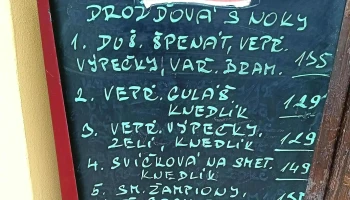 DROŽĎOVÁ S NOKY
1. DUŠ. ŠPENÁT, VEPŘ.
VÝPEČKY, VAŘ. BRAM. 135
2. VEPŘ. GULÁŠ
KNEDLÍK 129
3. VEPŘ. VÝPEČKY,
ZELÍ, KNEDLÍK 129
4. SVÍČKOVÁ NA SMET.
KNEDLÍK 149
5. SM. ŽAMPIONY,